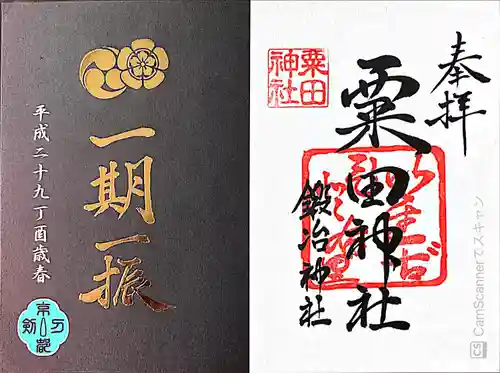 奉拝
粟田神社
鍛冶神社
粟田
神社
一期一振
平成二十九丁酉歳春
京都
刀剣
CS CamScannerでスキャン